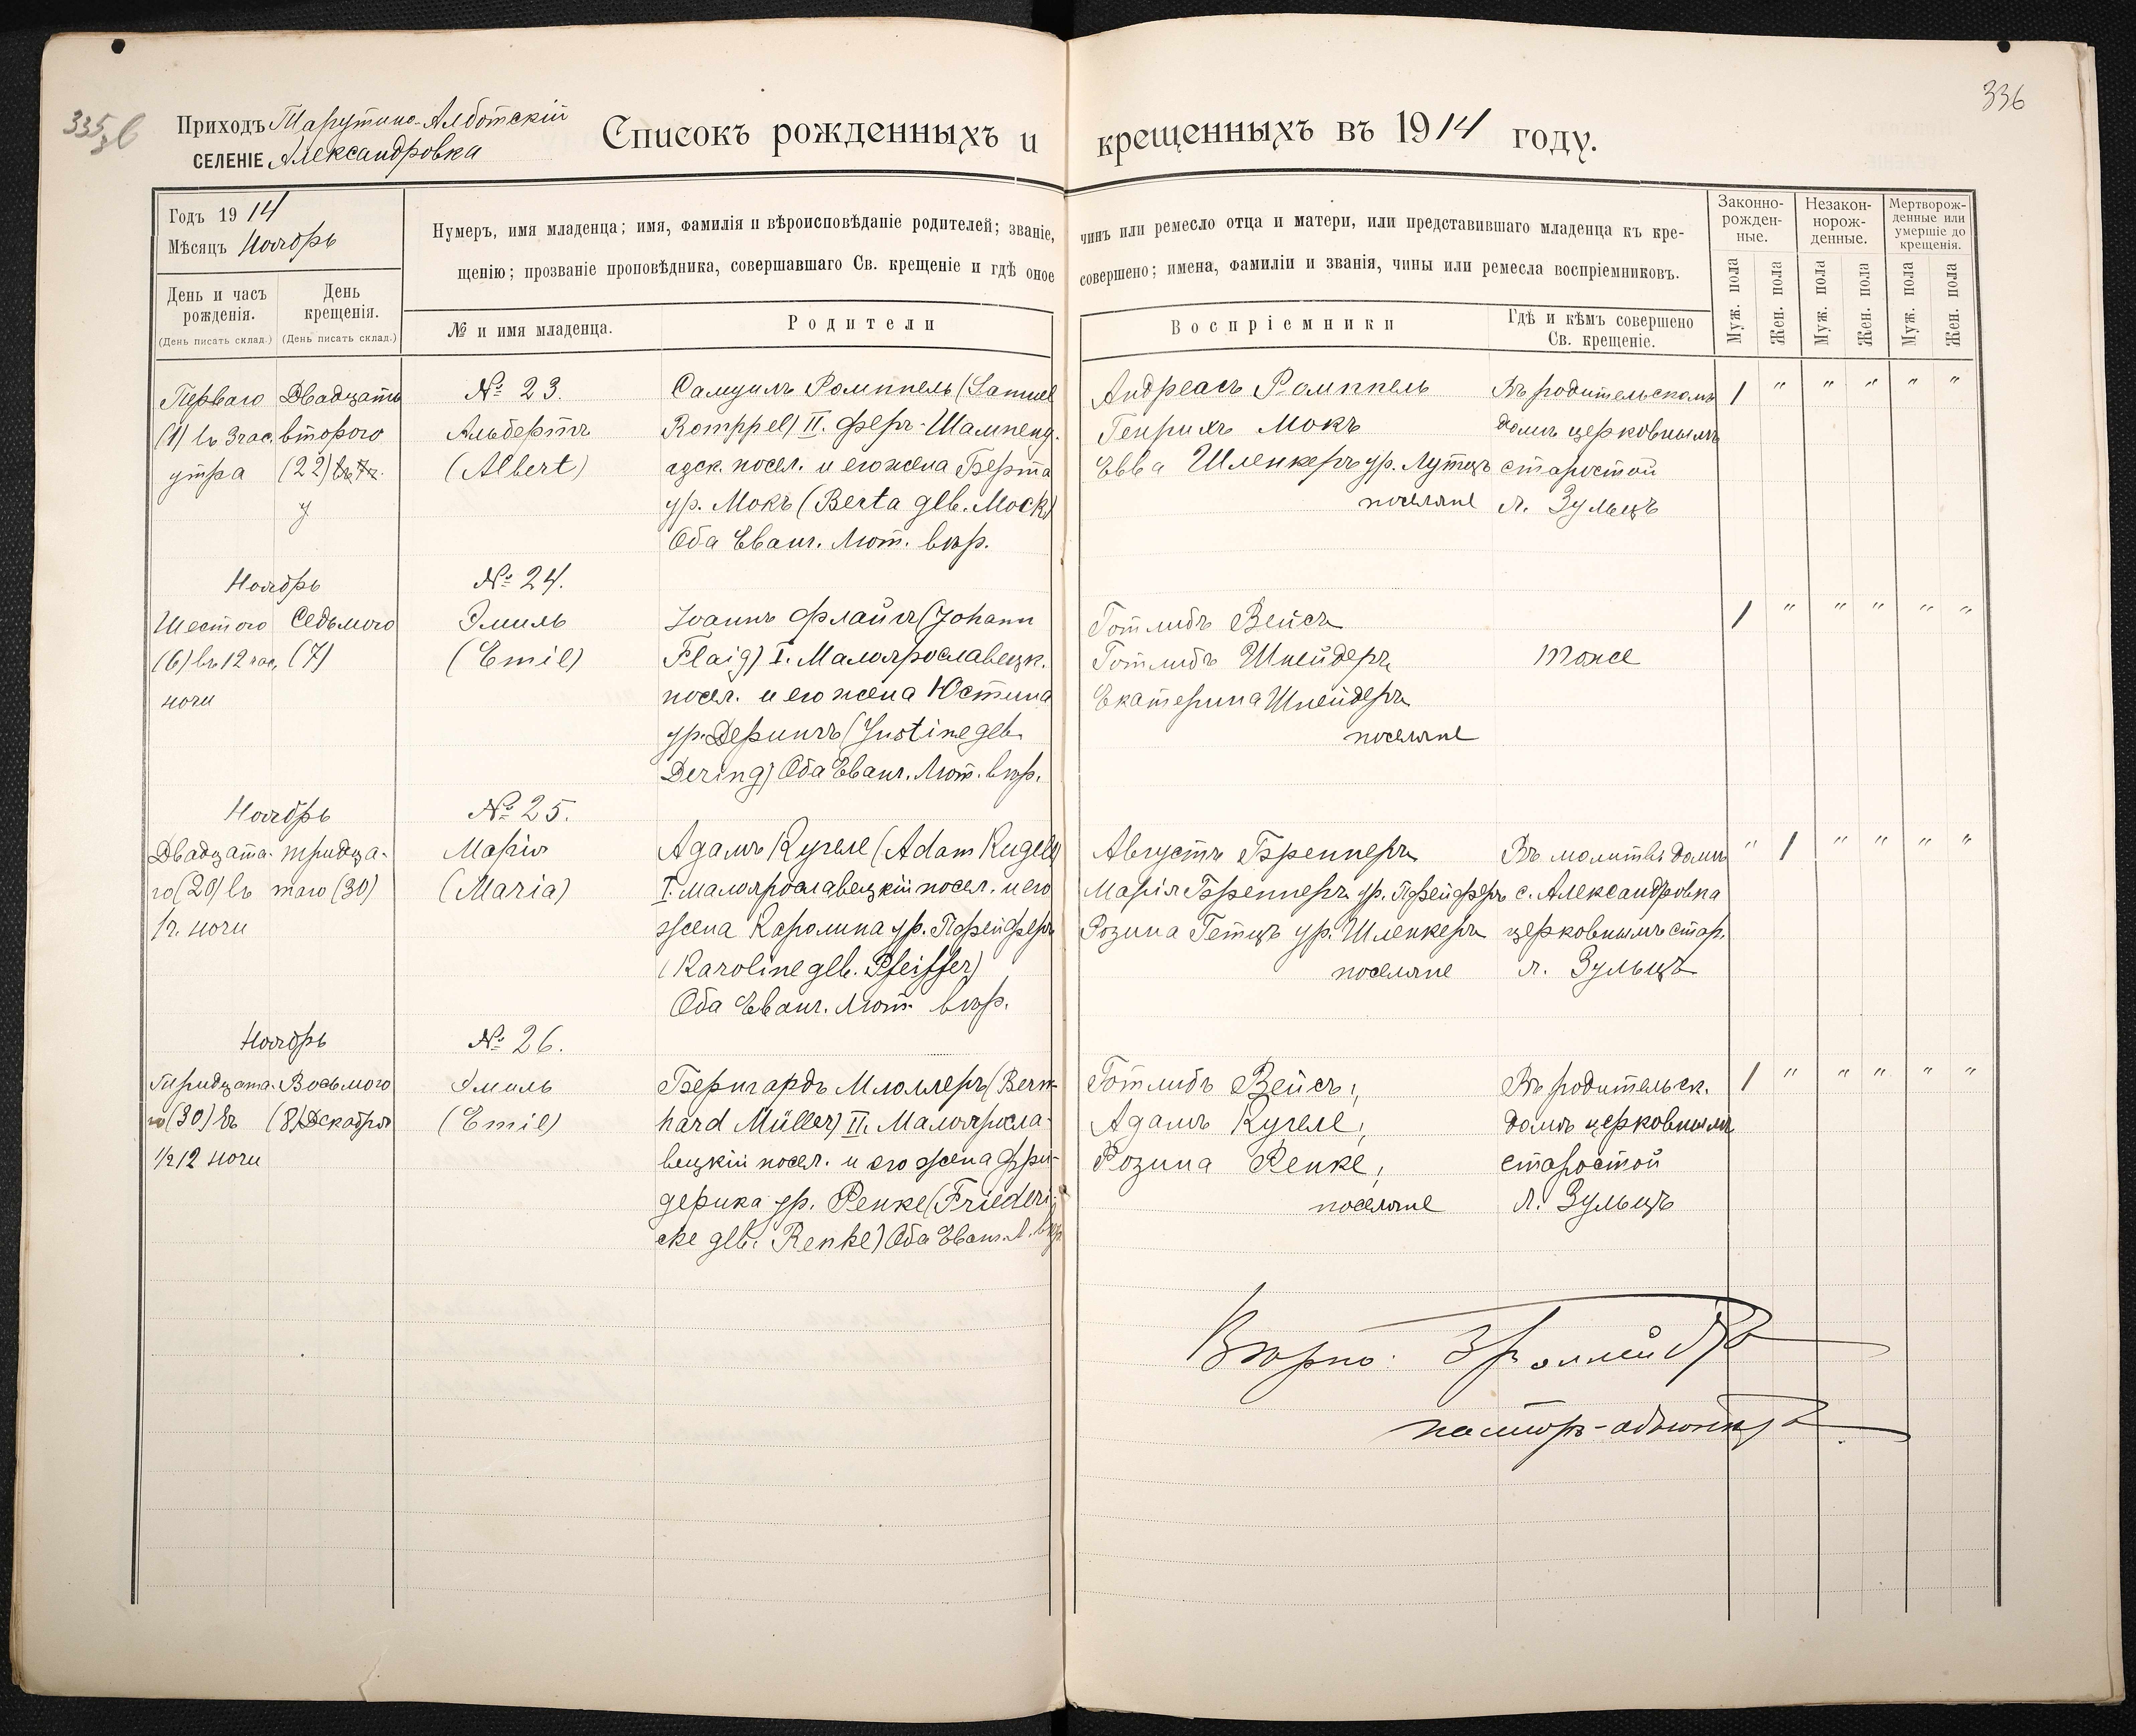 336
Приходъ Тарутино-Алботскій
СЕЛЕНІЕ Александровка
Списокъ рожденныхъ и крещенныхъ въ 1914 году.
Годъ 1914
Мѣсяцъ Ноябрь
День и часъ рожденія.
(День писать склад.)
День крещенія.
(День писать склад.)
Нумеръ, имя младенца; имя, фамилія и вѣроисповѣданіе родителей; званіе, чинъ или ремесло отца и матери, или представившаго младенца къ кре-
щенію; прозваніе проповѣдника, совершавшаго Св. крещеніе и гдѣ оное совершено; имена, фамиліи и званія, чины или ремесла воспріемниковъ.
№ и имя младенца.
Родители
Воспріемники
Гдѣ и кѣмъ совершено
Св. крещеніе.
Законно-
рожден-
ные.
Незакон-
норож-
денные.
Мертворож-
денные или
умершіе до
крещенія.
Муж. пола
Жен. пола
Муж. пола
Жен. пола
Муж. пола
Жен. пола
Перваго
(1) въ 3 час.
утра
Двадцать
второго
(22)
№ 23.
Альбертъ
(Albert)
Самуилъ Ромппель (Samuel
Romppel) II. Феръ-Шампенуа
азск. посел. и его жена Берта
ур. Мокъ (Berta geb. Mock)
Оба Еванг. Лют. вѣр.
Андреасъ Ромппель
Генрихъ Мокъ
Евва Шленкеръ ур. Лутцъ
поселяне
Въ родительскомъ
домѣ церковнымъ
старостой
Л. Зульцъ
1 " " " " "
Ноябрь
Шестого
(6) въ 12 час.
ночи
Седьмого
(7)
№ 24.
Эмиль
(Emil)
Іоаннъ Флайгъ (Johann
Flaig) I. Малоярославецк.
посел. и его жена Юстина
ур. Дерингъ (Justine geb.
Dering) Оба Еванг. Лют. вѣр.
Готлибъ Вейсъ
Готлибъ Шнейдеръ
Екатерина Шнейдеръ
поселяне
тоже
1 " " " " "
Ноябрь
Двадцата-
го (20) въ
1 ч. ночи
тридца-
таго (30)
№ 25.
Марія
(Maria)
Адамъ Кугеле (Adam Kugele)
I. Малоярославецкій посел. и его
жена Каролина ур. Пфейферъ
(Karoline geb. Pfeiffer)
Оба Еванг. Лют. вѣр.
Августъ Бреннеръ
Марія Бреннеръ ур. Пфейферъ
Розина Гетцъ ур. Шленкеръ
поселяне
Въ молитв. домѣ
с. Александровка
церковнымъ стар.
Л. Зульцъ
" 1 " " " "
Ноябрь
Тридцата-
го (30) въ
1/2 12 ночи
Восьмого
(8) Декабря
№ 26.
Эмиль
(Emil)
Бернгардъ Мюллеръ (Bern-
hard Müller) II. Малояросла-
вецкій посел. и его жена Фри-
дерика ур. Ренке (Friederi-
cke geb. Renke) Оба Еванг. Л. вѣр.
Готлибъ Вейсъ,
Адамъ Кугеле,
Розина Ренке,
поселяне
Въ родительск.
домѣ церковнымъ
старостой
Л. Зульцъ
1 " " " " "
Вѣрно:
пастор-адъюнктъ